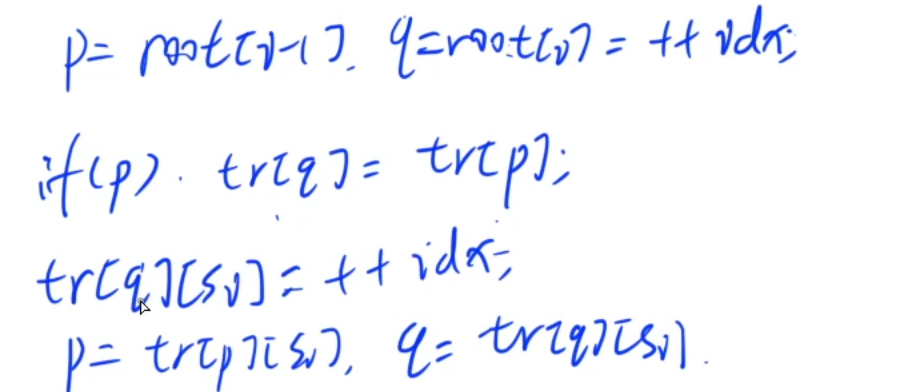 p= root[i-1]. q=root[i] = ++idx;
if(p). tr[q] = tr[p];
tr[q][si] = ++idx;
p= tr[p][si], q= tr[q][si].